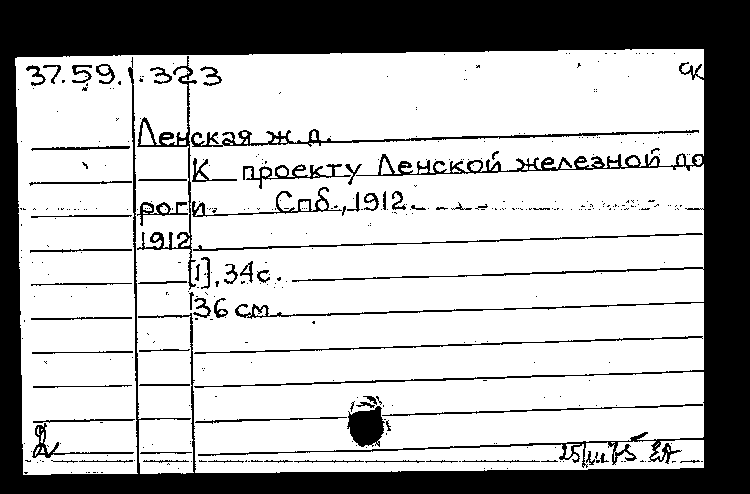 37.59.1.323 ск
Ленская ж.д.
К проекту Ленской железной до
роги. Спб., 1912.
1912.
[1], 34 с.
36 см.
2